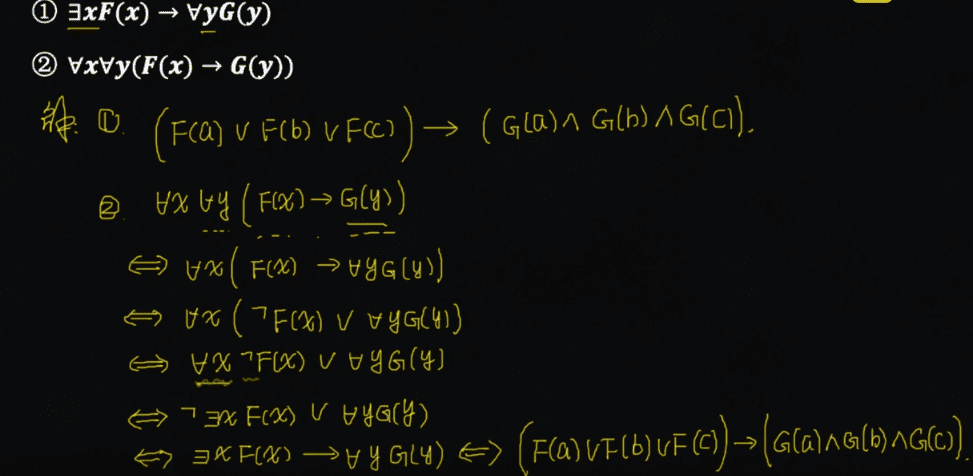 ① ∃xF(x) → ∀yG(y)
② ∀x∀y(F(x) → G(y))
解. ①. (F(a) ∨ F(b) ∨ F(c)) → (G(a) ∧ G(b) ∧ G(c)).
② ∀x ∀y (F(x) → G(y))
⇔ ∀x( F(x) → ∀yG(y))
⇔ ∀x (¬F(x) ∨ ∀yG(y))
⇔ ∀x ¬F(x) ∨ ∀yG(y)
⇔ ¬∃x F(x) ∨ ∀yG(y)
⇔ ∃xF(x) → ∀yG(y) ⇔ (F(a)∨F(b)∨F(c)) → (G(a)∧G(b)∧G(c)).